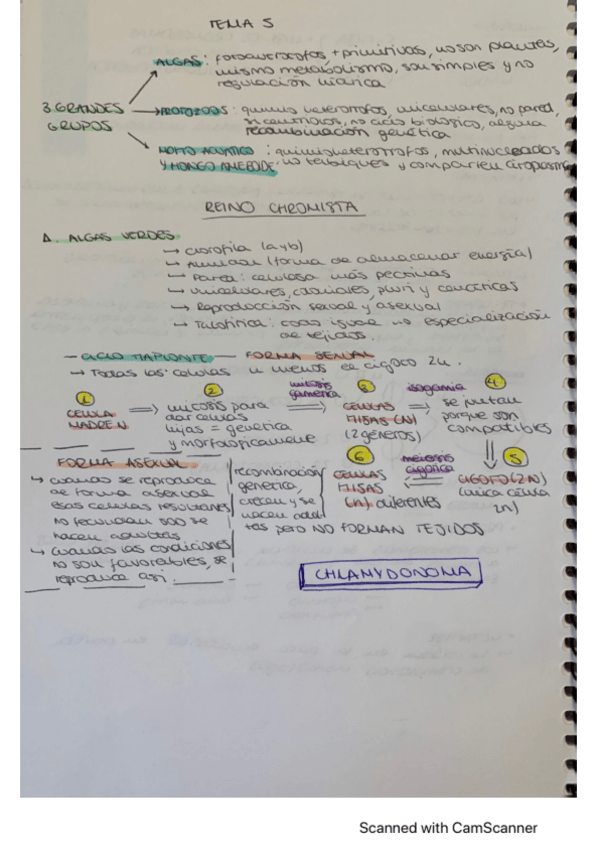 TEMA 5
ALGAS: fotoautotrofos + primitivas, no son plantas,
mismo metabolismo, son simples y no
regulación hídrica
3 GRANDES
GRUPOS
PROTOZOOS: quimio heterotrofos, unicelulares, no pared,
no ciclo biológico, alguna
recombinación genética
MOHO ACUÁTICO: quimioheterotrofos, multinucleados
Y HONGO AMEBOIDE, no tabiques y comparten citoplasma
REINO CHROMISTA
1. ALGAS VERDES
→ clorofila (a y b)
→ Almidón (forma de almacenar energía)
→ Pared: celulosa más pectinas
→ unicelulares, coloniales, pluri y cenocíticas
→ Reproducción sexual y asexual
→ Talofítica: todo igual no especialización
de tejidos.
— CICLO HAPLONTE — FORMA SEXUAL
→ Todas las células n menos el cigoto 2n.
1
CÉLULA
MADRE N
2
mitosis para
dar células
hijas = genética
y morfológicamente
mitosis
gamética
3
CÉLULAS
HIJAS (N)
(2 géneros)
isogamia
4
se juntan
porque son
compatibles
5
CIGOTO (2N)
(única célula
2n)
meiosis
cigótica
6
CÉLULAS
HIJAS
(n) diferentes
recombinación
genética,
crecen y se
hacen adul
tas pero NO FORMAN TEJIDOS
FORMA ASEXUAL
→ cuando se reproduce
de forma asexual
esas células resultantes
no fecundan solo se
hacen adultas
→ cuando las condiciones
no son favorables, se
reproduce así.
CHLAMYDONOMA
Scanned with CamScanner